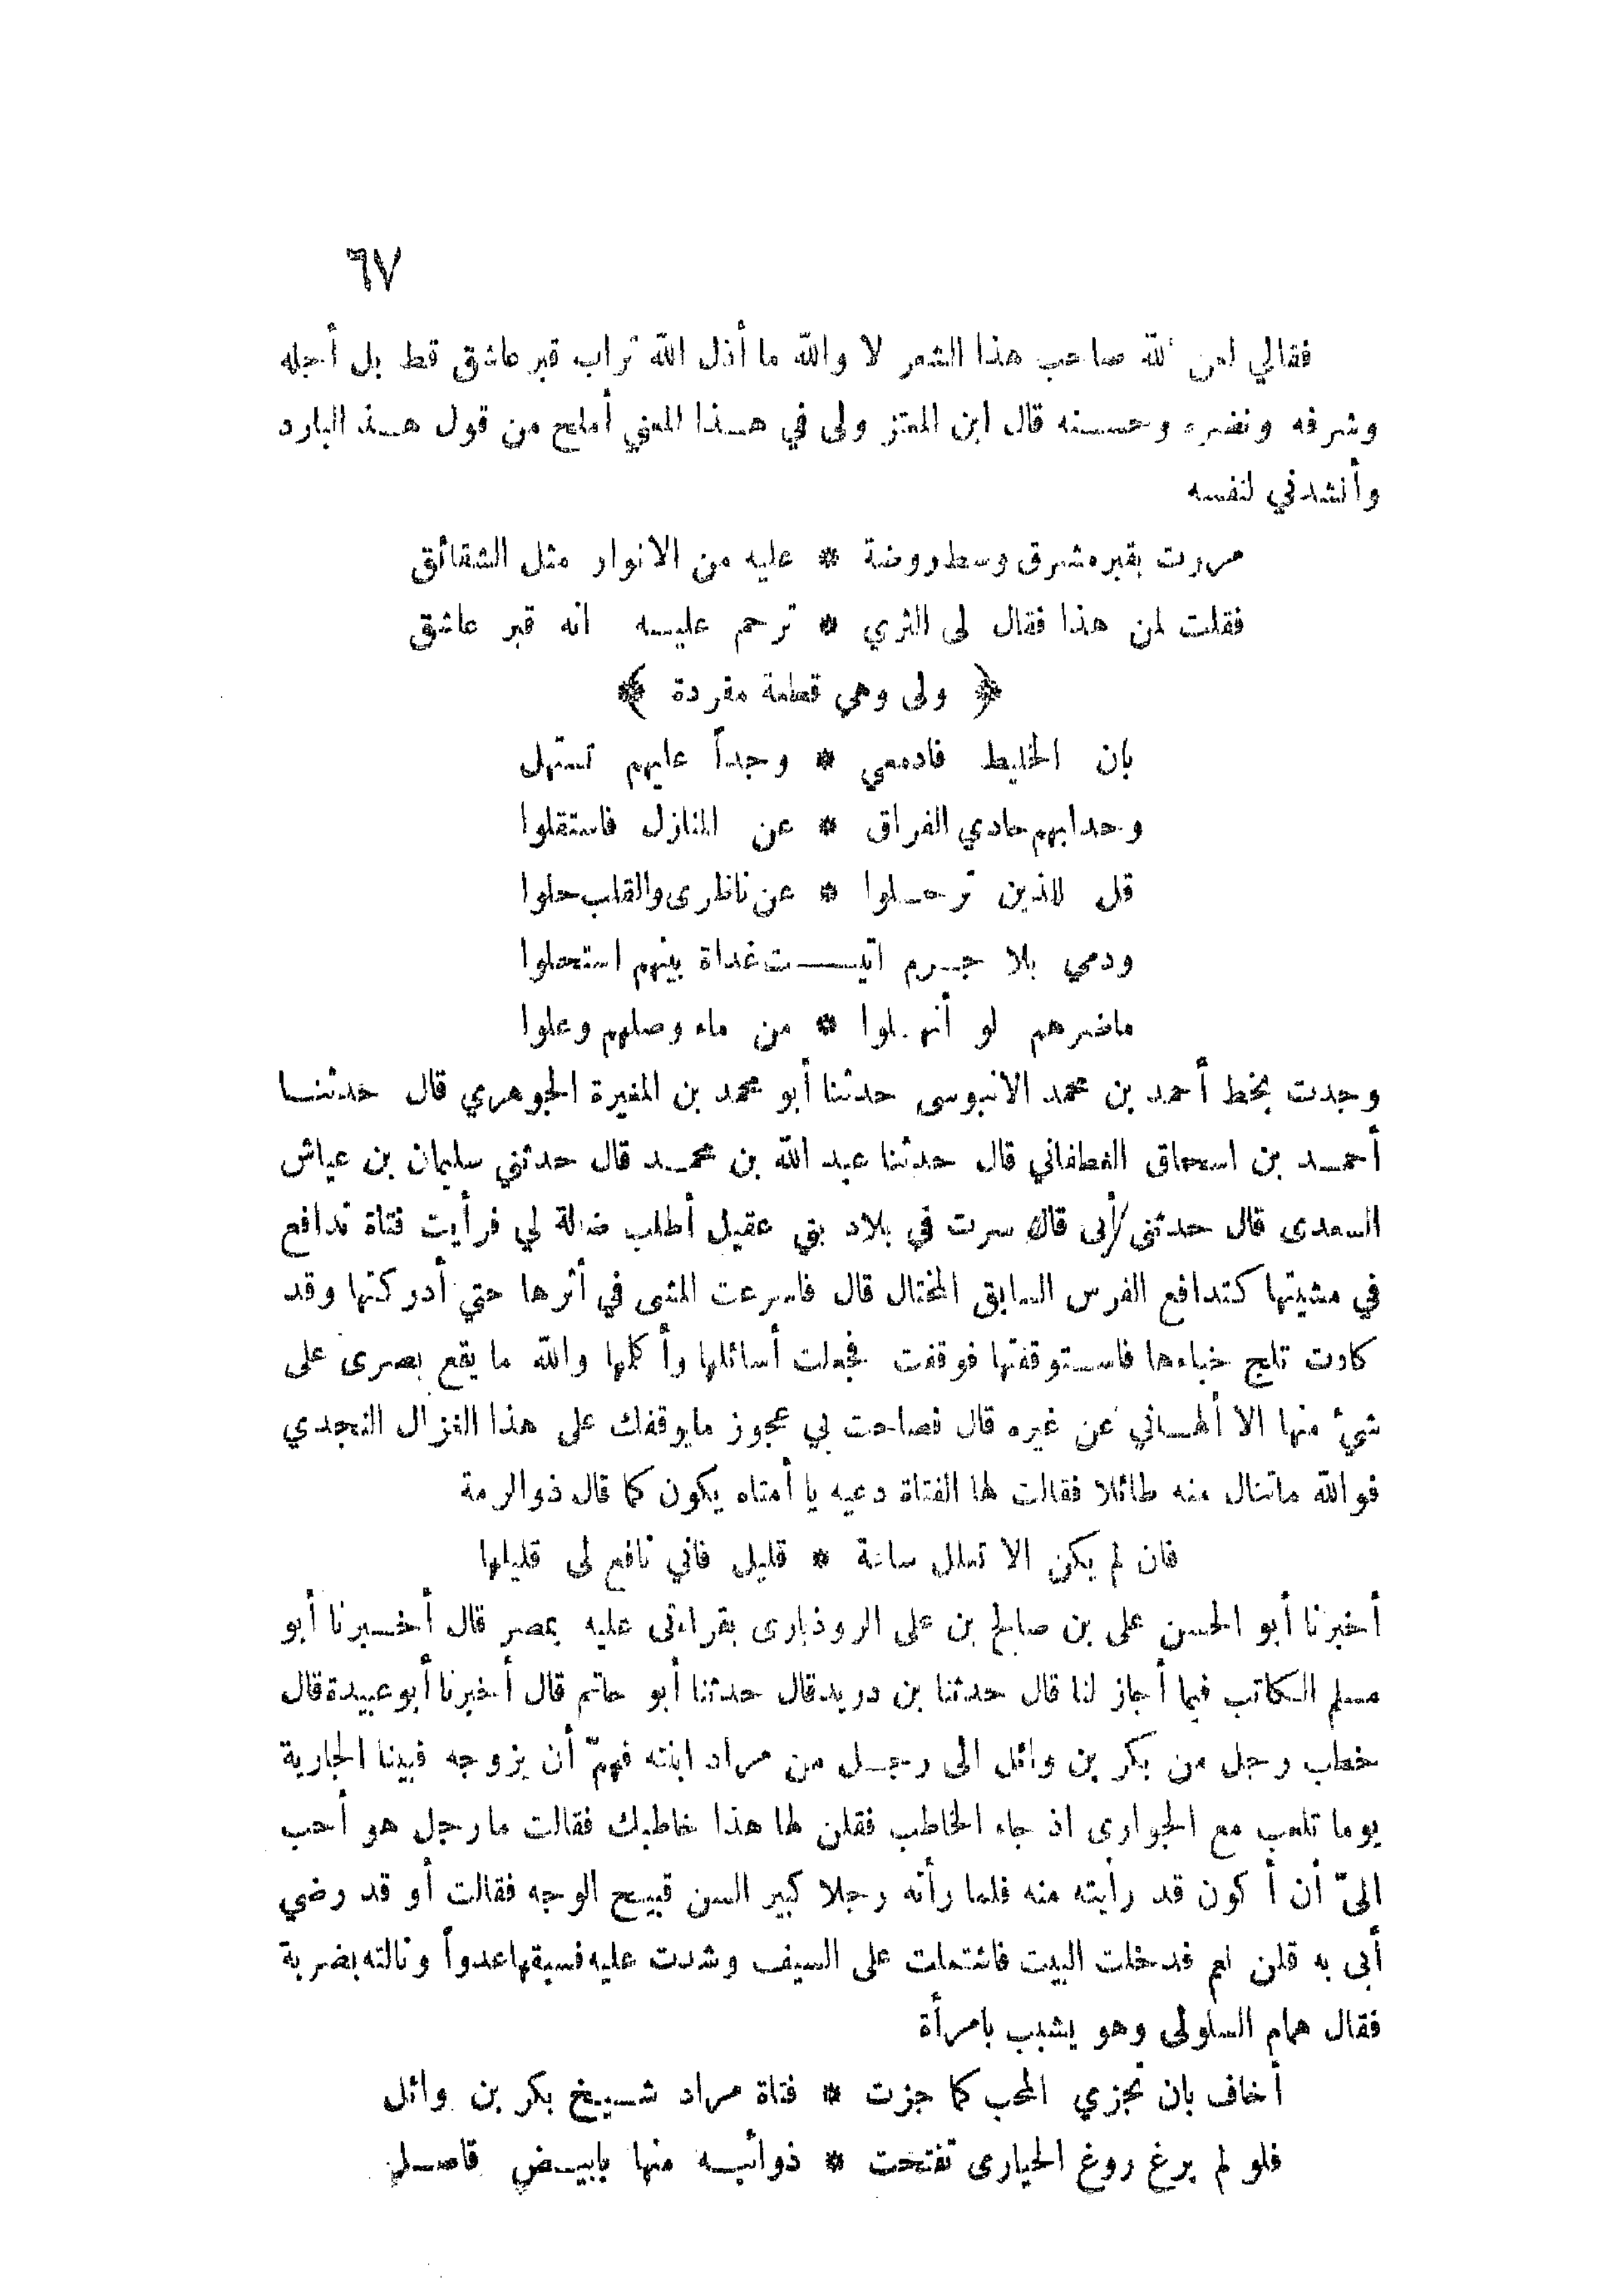 ٦٧
فقالي لعن الله صاحب هذا الشعر لا والله ما أذل الله تراب قبر عاشق قط بل أجله
وشرفه ونضره وحسنه قال ابن المعتز ولى في هذا المعني أملح من قول هذ البارد
وأنشدني لنفسه
مررت بقبر مشرق وسط روضة * عليه من الانوار مثل الشقائق
فقلت لمن هذا فقال لى الثري * ترحم عليه انه قبر عاشق
﴿ ولى وهي قطعة مفردة ﴾
بان الخليط فادمعي * وجداً عليهم تستهل
وحدابهم حادي الفراق * عن المنازل فاستقلوا
قل للذين ترحلوا * عن ناظرى والقلب حلوا
ودمي بلا جرم اتيت غداة بينهم استحلوا
ماضرهم لو أنهلوا * من ماء وصلهم وعلوا
وجدت بخط أحمد بن محمد الانبوسى حدثنا أبو محمد بن المغيرة الجوهري قال حدثنا
أحمد بن اسحاق الغطفاني قال حدثنا عبد الله بن محمد قال حدثني سليمان بن عياش
السعدى قال حدثنى أبى قال سرت في بلاد بني عقيل أطلب ضالة لي فرأيت فتاة تدافع
في مشيتها كتدافع الفرس السابق المختال قال فاسرعت المشى في أثرها حتي أدركتها وقد
كادت تلج خباءها فاستوقفتها فوقفت فجعلت أسائلها وأكلمها والله ما يقع بصرى على
شيئ منها الا ألهاني عن غيره قال فصاحت بي عجوز مايوقفك على هذا الغزال النجدي
فوالله ماتنال منه طائلا فقالت لها الفتاة دعيه يا أمتاه يكون كما قال ذوالرمة
فان لم يكن الا تعلل ساعة * قليل فاني نافع لى قليلها
أخبرنا أبو الحسن على بن صالح بن على الروذبارى بقراءتى عليه بمصر قال أخبرنا أبو
مسلم الكاتب فيما أجاز لنا قال حدثنا بن دريد قال حدثنا أبو حاتم قال أخبرنا أبو عبيدة قال
خطب رجل من بكر بن وائل الى رجل من مراد ابنته فهمّ أن يزوجه فبينا الجارية
يوما تلعب مع الجوارى اذ جاء الخاطب فقلن لها هذا خاطبك فقالت مارجل هو أحب
الىّ أن أكون قد رأيته منه فلما رأته رجلا كبير السن قبيح الوجه فقالت أو قد رضي
أبى به قلن نعم فدخلت البيت فاشتملت على السيف وشدت عليه فسبقها عدواً ونالته بضربة
فقال همام السلولى وهو يشبب بامرأة
أخاف بان تجزي المحب كما جزت * فتاة مراد شيخ بكر بن وائل
فلو لم يرغ روغ الحبارى تفتحت * ذوائبه منها بابيض قاصل